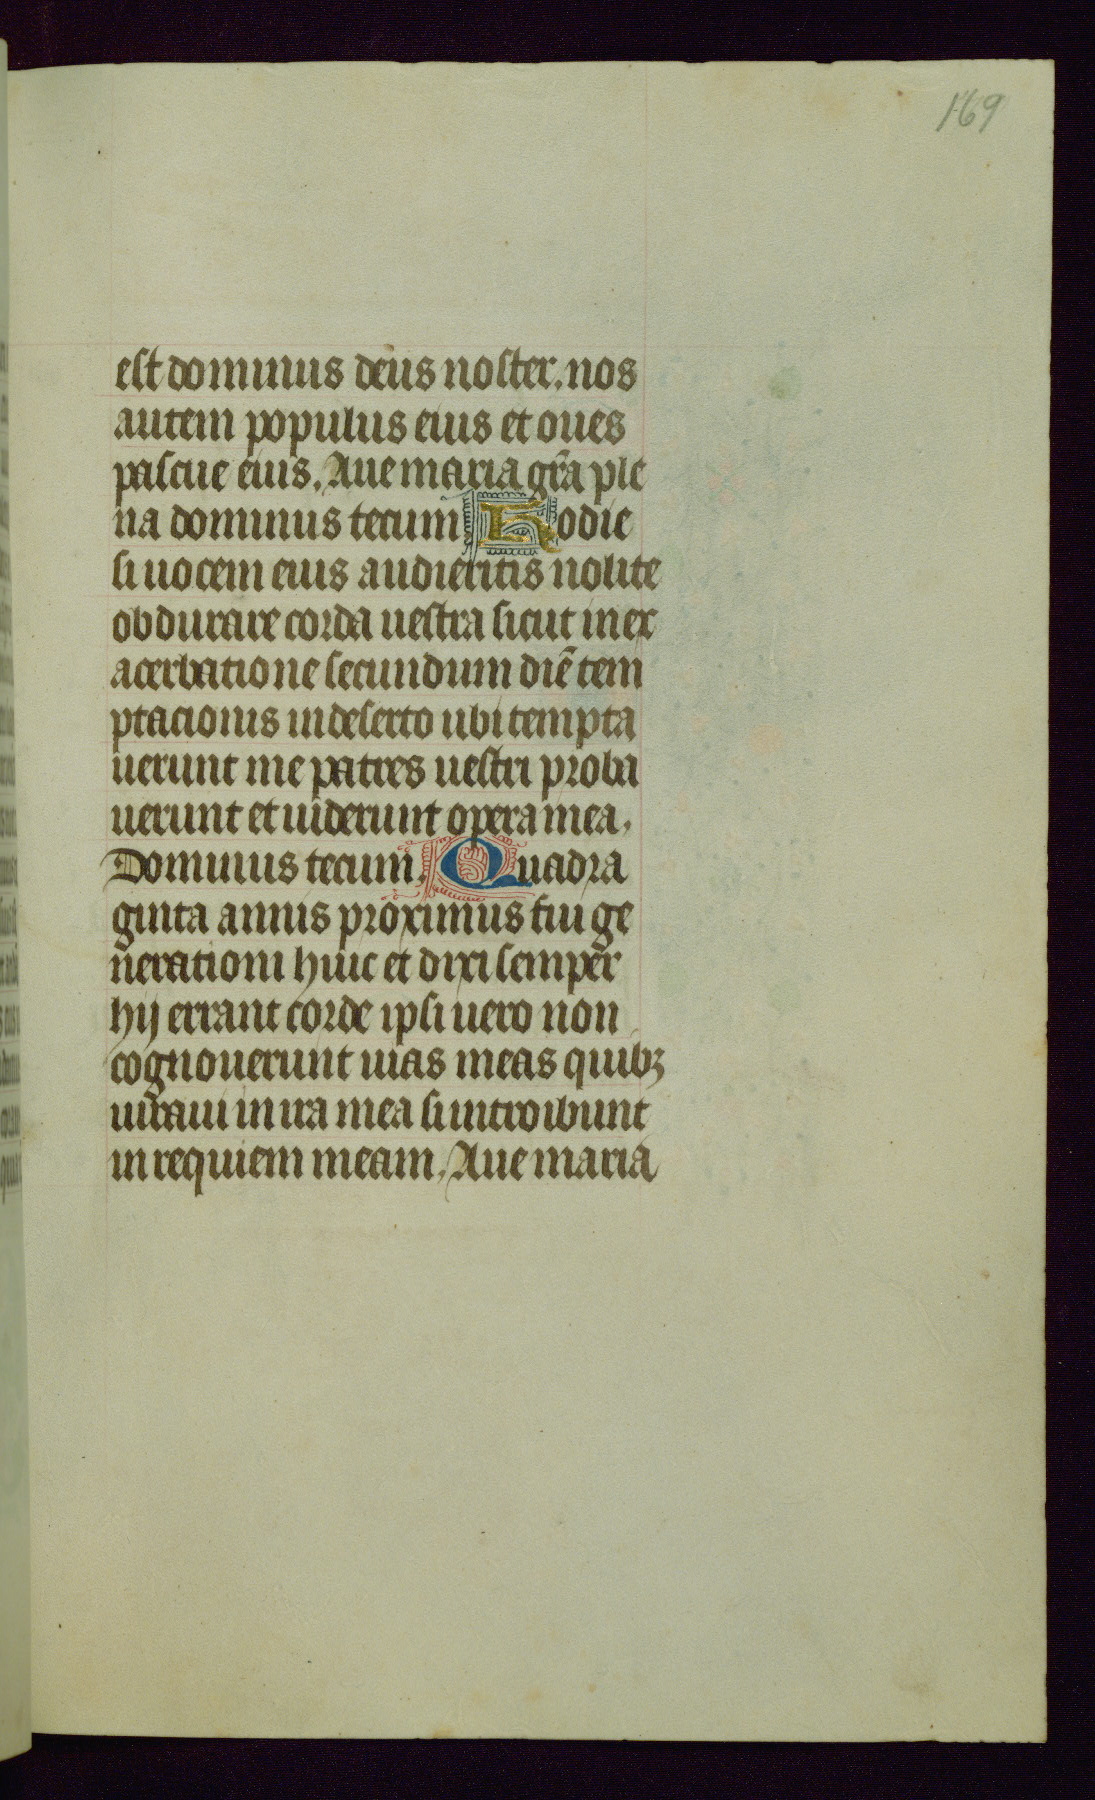 169
est dominus deus noster. nos
autem populus eius et oues
pascue eius. Aue maria gr̄a ple
na dominus tecum Hodie
si uocem eius audieritis nolite
obdurare corda uestra sicut in ex
acerbatione secundum diē tem
ptacionis in deserto ubi tempta
uerunt me patres uestri proba
uerunt et uiderunt opera mea.
Dominus tecum. Quadra
ginta annis proximus fui ge
nerationi huic et dixi semper
hij errant corde ipsi uero non
cognouerunt uias meas quibꝫ
iuraui in ira mea si introibunt
in requiem meam. Aue maria